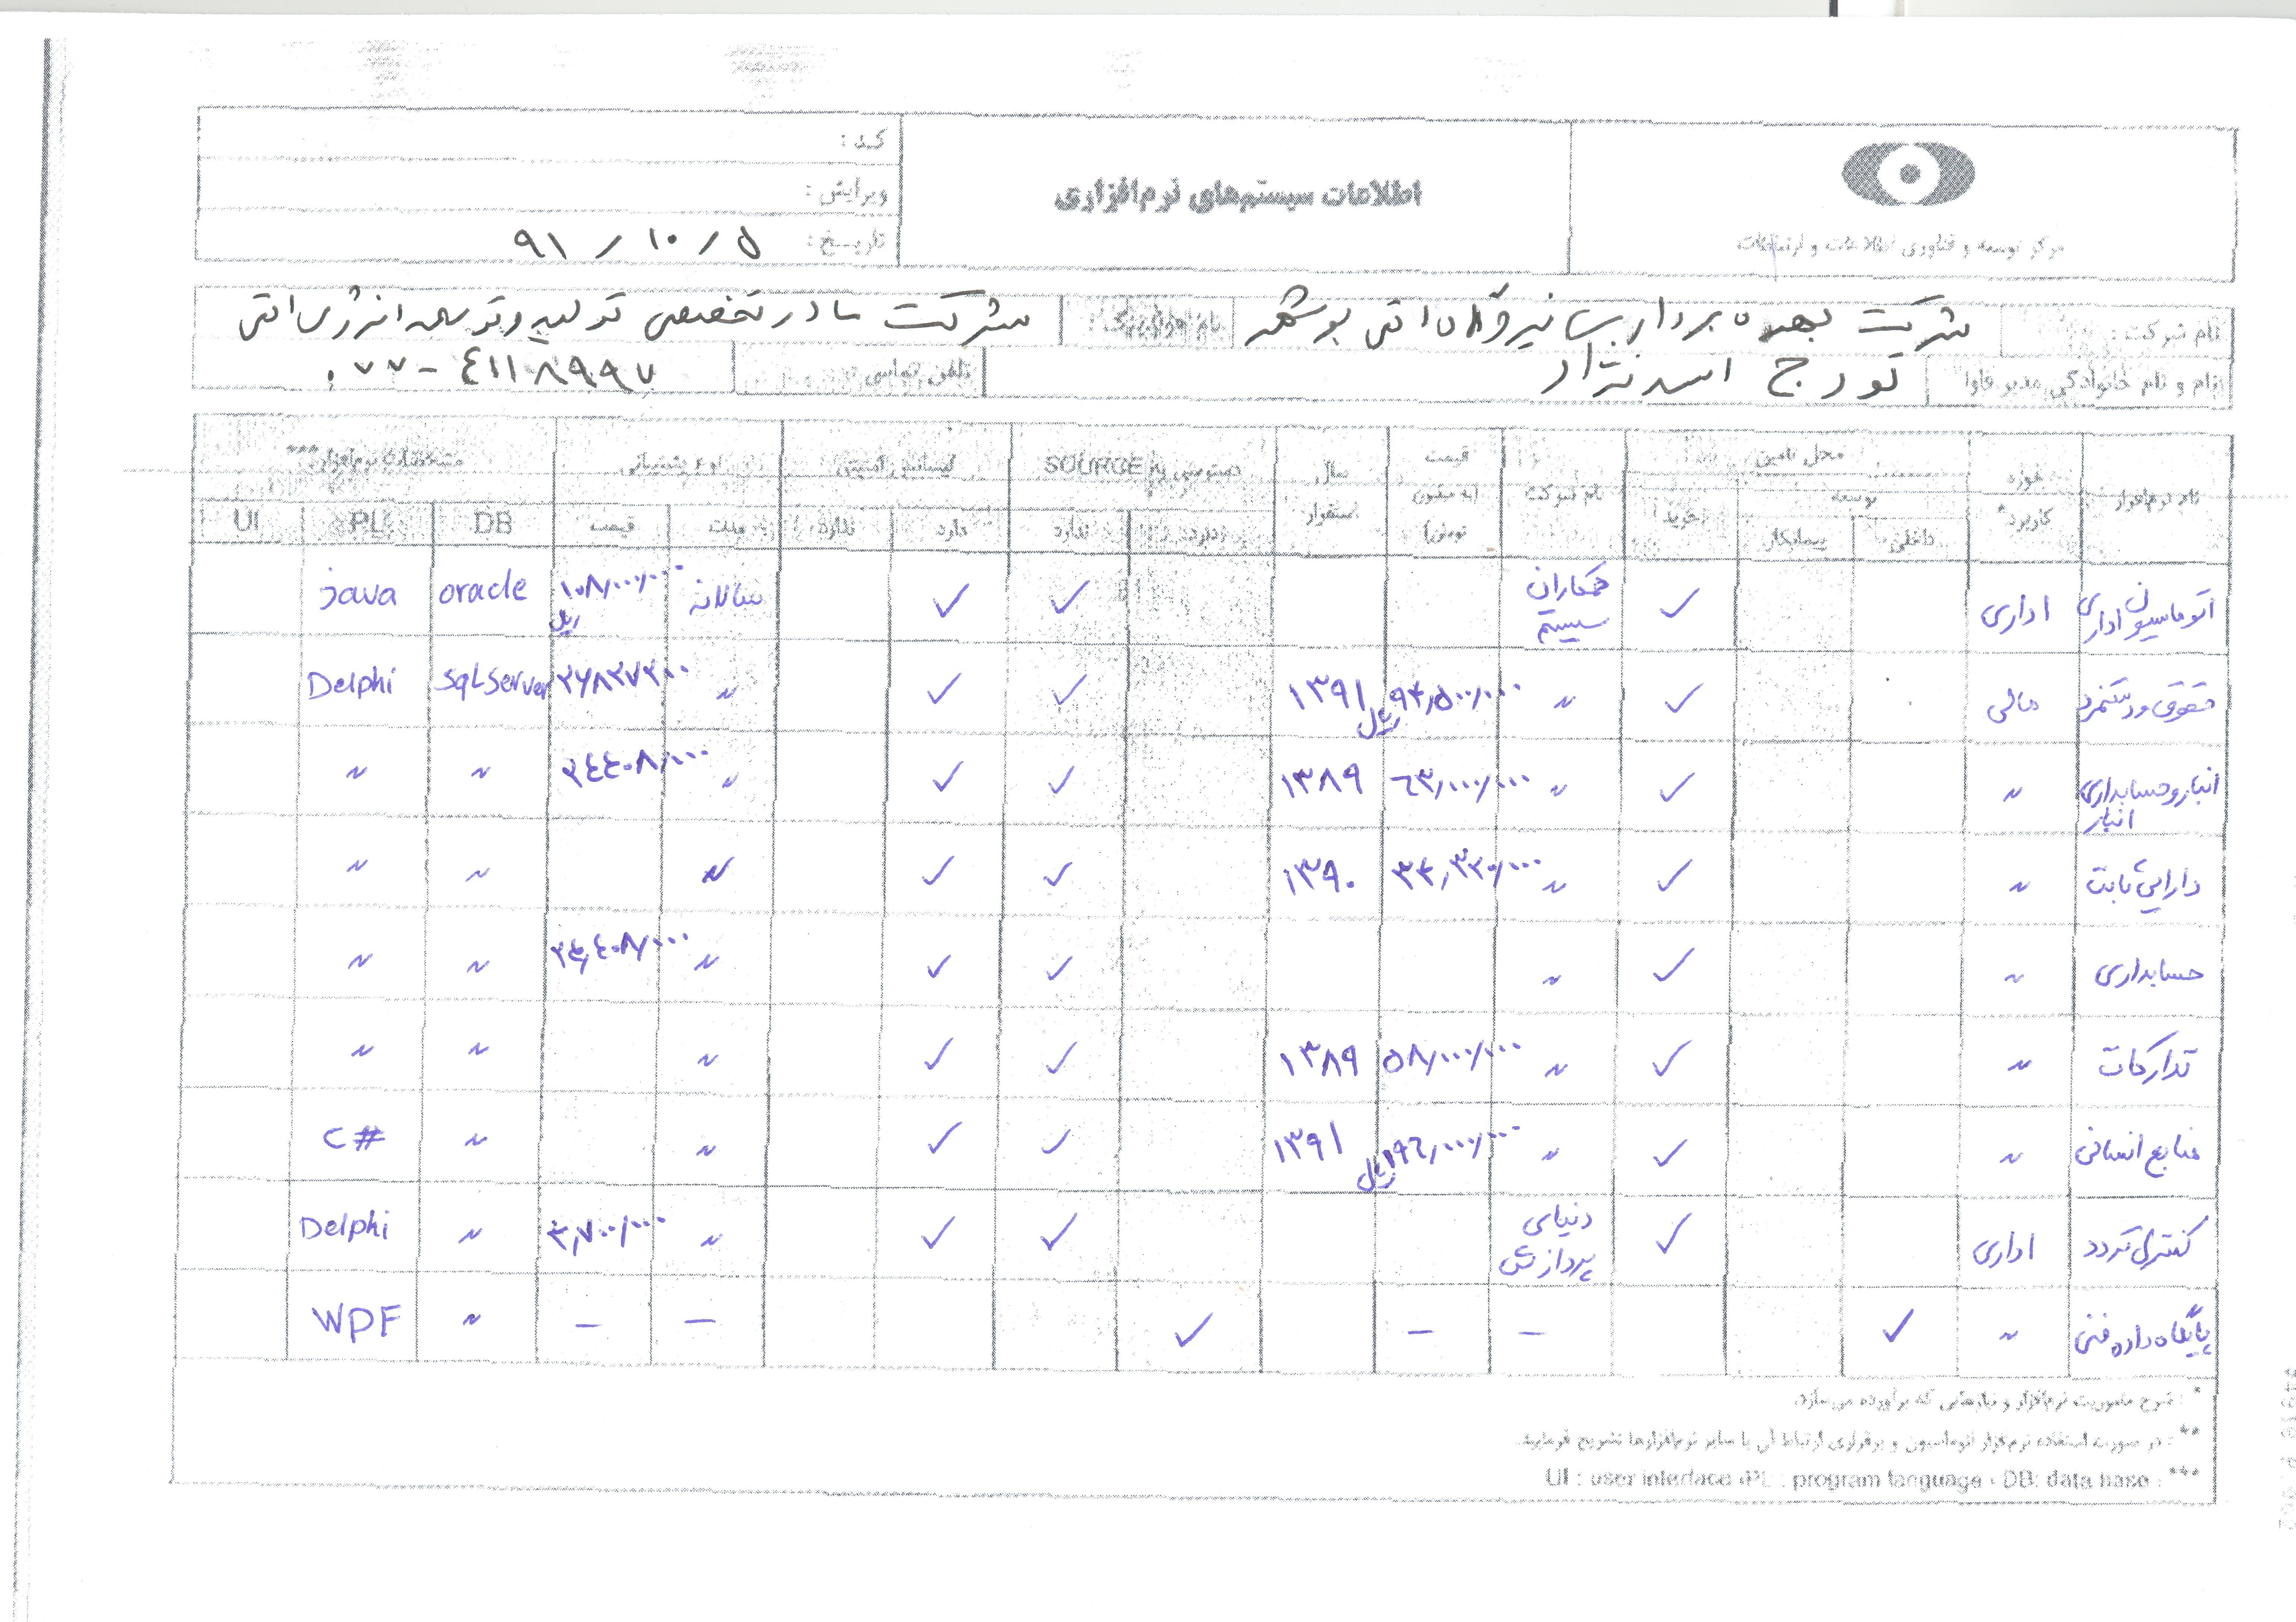 مرکز توسعه و فناوری اطلاعات و ارتباطات
اطلاعات سیستم‌های نرم‌افزاری
کـد :
ویرایش :
تاریـخ : ۹۱ / ۱۰ / ۵
نام شرکت : شرکت بهره برداری نیروگاه اتمی بوشهر شرکت مادر تخصصی تولید و توسعه انرژی اتمی
نام و نام خانوادگی مدیر فاوا تورج اسدنژاد تلفن تماس ۰۷۷-۴۱۱۸۹۹۷
نام نرم‌افزار حوزه کاربرد* محل تامین نام شرکت قیمت (به میلیون تومان) سال استقرار دسترسی به SOURCE لیسانس امنیتی نوع پشتیبانی مشخصات نرم‌افزار***
توسعه خرید
داخلی پیمانکار دارد ندارد دارد ندارد مدت قیمت DB PL UI
اتوماسیون اداری اداری ✓ همکاران سیستم ✓ ✓ سالانه ۱۰۸/۰۰۰/۰۰۰ ریال oracle java
حقوق و دستمزد مالی ✓ 〃 ۹۴,۵۰۰/۰۰۰ ریال ۱۳۹۱ ✓ ✓ 〃 SQL Server Delphi
انبار و حسابداری انبار 〃 ✓ 〃 ۶۳,۰۰۰/۰۰۰ ۱۳۸۹ ✓ ✓ 〃 ۳۴۴۰۸/۰۰۰ 〃 〃
دارایی ثابت 〃 ✓ 〃 ۱۳۹۰ ✓ ✓ 〃 〃 〃
حسابداری 〃 ✓ 〃 ✓ ✓ 〃 ۳۴,۴۰۸/۰۰۰ 〃 〃
تدارکات 〃 ✓ 〃 ۵۸/۰۰۰/۰۰۰ ۱۳۸۹ ✓ ✓ 〃 〃 〃
منابع انسانی 〃 ✓ 〃 ۱۹۶,۰۰۰/۰۰۰ ریال ۱۳۹۱ ✓ ✓ 〃 〃 C#
کنترل تردد اداری ✓ دنیای پردازش ✓ ✓ 〃 〃 Delphi
پایگاه داده فنی 〃 ✓ – – ✓ – – 〃 WPF
* : شرح ماموریت نرم‌افزار و نیازهایی که برآورده می‌سازد.
** : در صورت استفاده نرم‌افزار اتوماسیون و برقراری ارتباط آن با سایر نرم‌افزارها تشریح فرمایید.
*** : UI : user interface ‌PL : program language - DB: data base